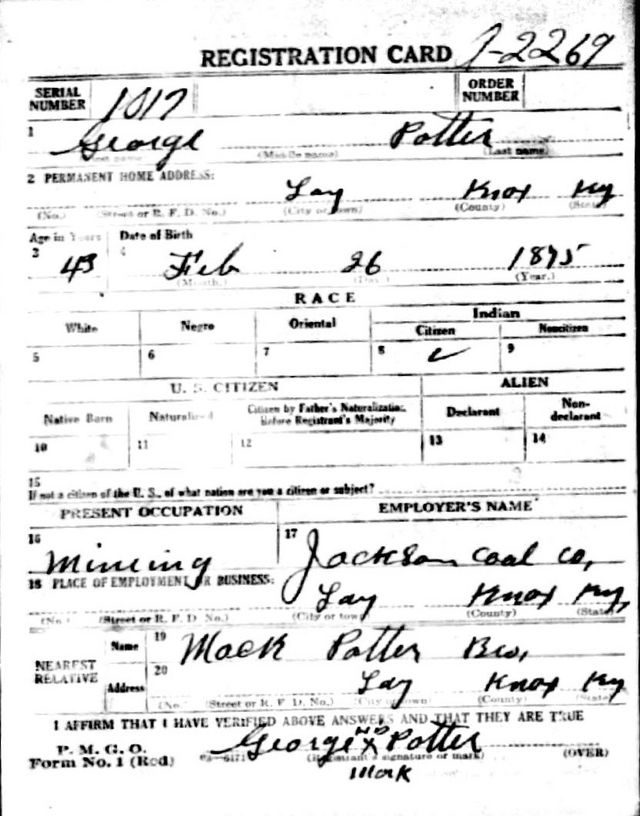 REGISTRATION CARD J-2269
SERIAL NUMBER 1017 ORDER NUMBER
1 George Potter
(First name) (Middle name) (Last name)
2 PERMANENT HOME ADDRESS:
Lay Knox Ky
(No.) (Street or R. F. D. No.) (City or town) (County) (State)
Age in Years Date of Birth
3 43 4 Feb 26 1875
(Month.) (Day.) (Year.)
RACE
White Negro Oriental Indian
Citizen Noncitizen
5 6 7 8 ✓ 9
U. S. CITIZEN ALIEN
Native Born Naturalized Citizen by Father's Naturalization Before Registrant's Majority Declarant Non-declarant
10 11 12 13 14
15
If not a citizen of the U. S., of what nation are you a citizen or subject?
PRESENT OCCUPATION EMPLOYER'S NAME
16 Mining 17 Jackson Coal Co,
18 PLACE OF EMPLOYMENT OR BUSINESS:
Lay Knox Ky,
(No.) (Street or R. F. D. No.) (City or town) (County) (State)
NEAREST RELATIVE Name 19 Mack Potter Bro,
Address 20 Lay Knox Ky
(No.) (Street or R. F. D. No.) (City or town) (County) (State)
I AFFIRM THAT I HAVE VERIFIED ABOVE ANSWERS AND THAT THEY ARE TRUE
P. M. G. O.
Form No. 1 (Red) George X Potter
(Registrant's signature or mark) (OVER)
mark